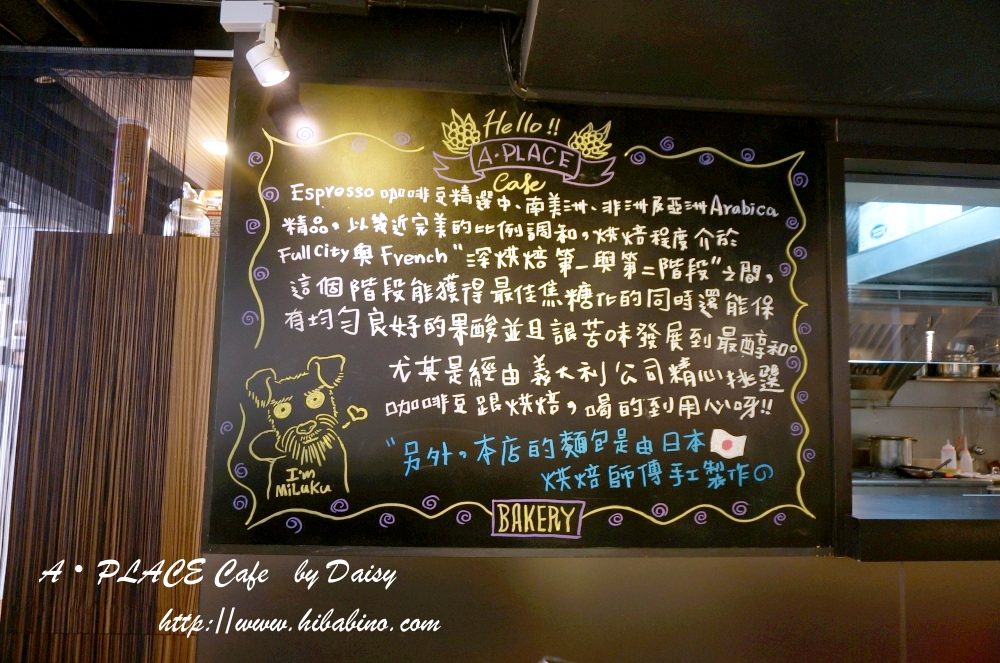 Hello!!
A·PLACE
Cafe
Espresso 咖啡豆精選中、南美洲、非洲及亞洲Arabica
精品，以幾近完美的比例調和，烘焙程度介於
Full City 與 French "深烘焙第一與第二階段"之間，
這個階段能獲得最佳焦糖化的同時還能保
有均勻良好的果酸並且讓苦味發展到最醇和。
尤其是經由義大利公司精心挑選
咖啡豆跟烘焙，喝的到用心呀!!
"另外，本店的麵包是由日本
烘焙師傅手工製作の
I'm
MiLuKu
BAKERY
A· PLACE Cafe by Daisy
http://www.hibabino.com